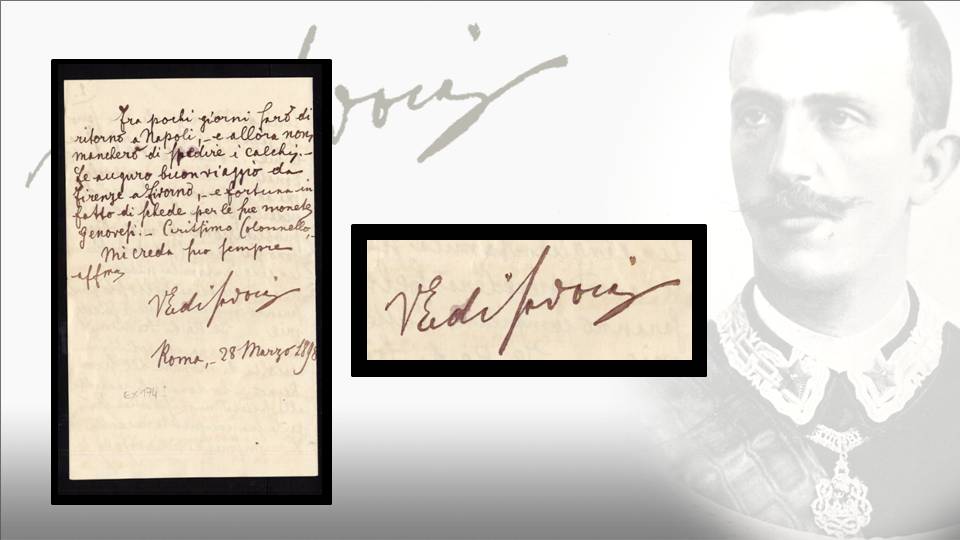 Fra pochi giorni farò di
ritorno a Napoli, – e allora non
mancherò di spedire i calchi. –
Le auguro buon viaggio da
Firenze a Livorno, – e fortuna in
fatto di schede per le sue monete
genovesi. – Carissimo Colonnello, –
mi creda suo sempre
affmo
VEdiSavoia
Roma, – 28 Marzo 1898
EX 174
VEdiSavoia